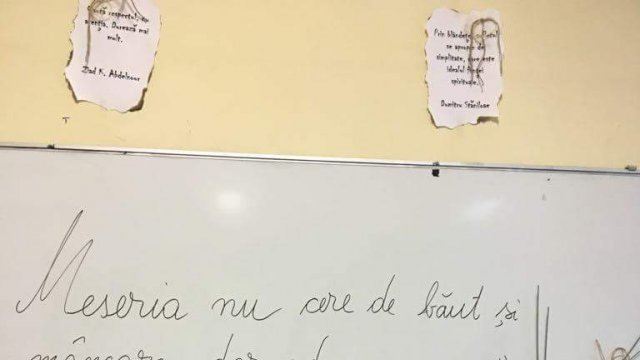 respectul, nu
atenția. Durează mai
mult.
Ziad K. Abdelnour
Prin blândețe, sufletul
se apropie de
simplitate, care este
idealul ființei
spirituale.
Dumitru Stăniloae
Meseria nu cere de băut și
mâncare dar